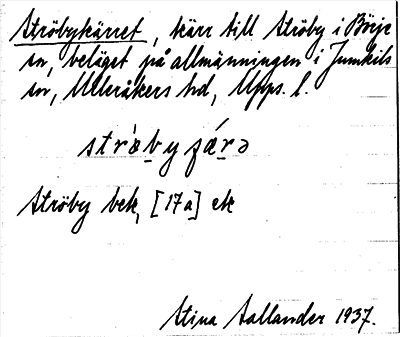 Ströbykärret, kärr till Ströby i Börje
sn, beläget på allmänningen i Jumkils
sn, Ulleråkers hd, Upps. l.
Ströby bek, [17a] ek
Stina Hallander 1937.